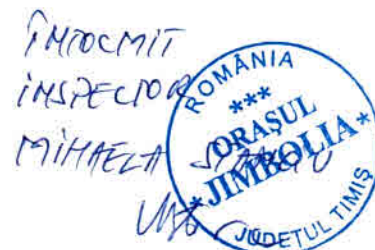 ÎNTOCMIT
INSPECTOR
MIHAELA
ROMÂNIA
***
ORAȘUL
*JIMBOLIA*
JUDEȚUL TIMIȘ